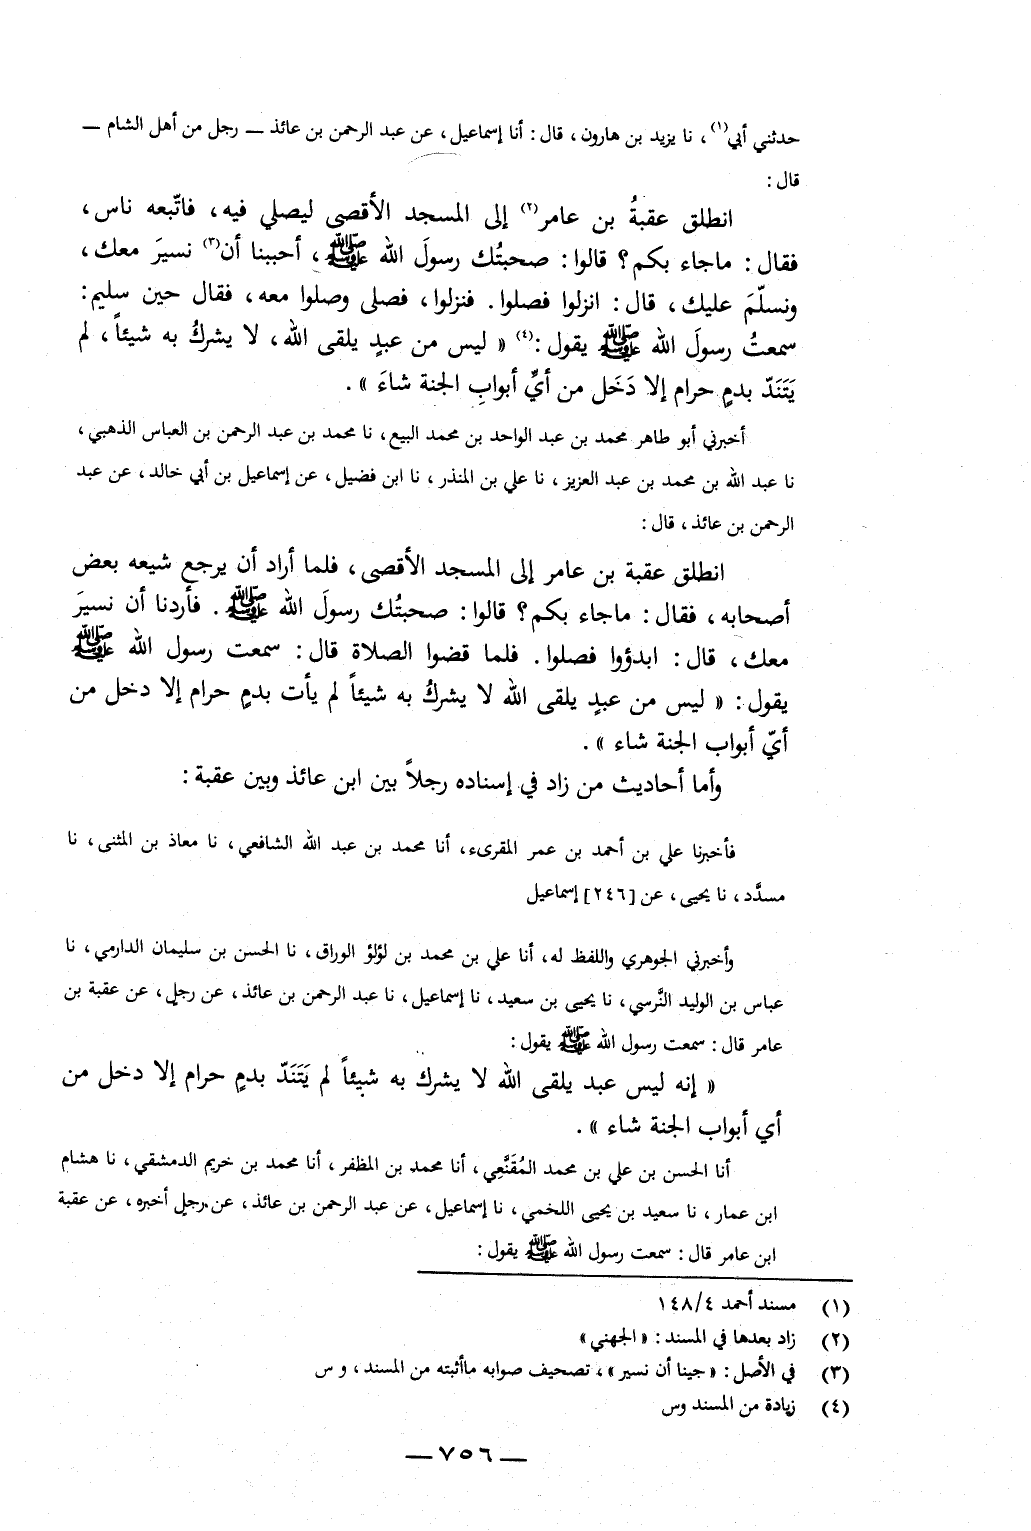 حدثني أبي(١)، نا يزيد بن هارون، قال: أنا إسماعيل، عن عبد الرحمن بن عائذ — رجل من أهل الشام —
قال:
انطلق عقبةُ بن عامر(٢) إلى المسجد الأقصى ليصلي فيه، فاتّبعه ناس،
فقال: ماجاء بكم؟ قالوا: صحبتُك رسولَ الله ﷺ، أحببنا أن(٣) نسيرَ معك،
ونسلّمَ عليك، قال: انزلوا فصلوا. فنزلوا، فصلى وصلوا معه، فقال حين سليم:
سمعتُ رسولَ الله ﷺ يقول:(٤) « ليس من عبدٍ يلقى الله، لا يشركُ به شيئاً، لم
يَتَنَدّ بدمٍ حرام إلا دَخَل من أيِّ أبوابِ الجنة شاءَ ».
أخبرني أبو طاهر محمد بن عبد الواحد بن محمد البيع، نا محمد بن عبد الرحمن بن العباس الذهبي،
نا عبد الله بن محمد بن عبد العزيز، نا علي بن المنذر، نا ابن فضيل، عن إسماعيل بن أبي خالد، عن عبد
الرحمن بن عائذ، قال:
انطلق عقبة بن عامر إلى المسجد الأقصى، فلما أراد أن يرجع شيعه بعض
أصحابه، فقال: ماجاء بكم؟ قالوا: صحبتُك رسولَ الله ﷺ. فأردنا أن نسيرَ
معك، قال: ابدؤوا فصلوا. فلما قضوا الصلاة قال: سمعت رسول الله ﷺ
يقول: « ليس من عبدٍ يلقى الله لا يشركُ به شيئاً لم يأت بدمٍ حرام إلا دخل من
أيّ أبواب الجنة شاء ».
وأما أحاديث من زاد في إسناده رجلاً بين ابن عائذ وبين عقبة:
فأخبرنا علي بن أحمد بن عمر المقرىء، أنا محمد بن عبد الله الشافعي، نا معاذ بن المثنى، نا
مسدَّد، نا يحيى، عن [٢٤٦] إسماعيل
وأخبرني الجوهري واللفظ له، أنا علي بن محمد بن لؤلؤ الوراق، نا الحسن بن سليمان الدارمي، نا
عباس بن الوليد النَّرسي، نا يحيى بن سعيد، نا إسماعيل، نا عبد الرحمن بن عائذ، عن رجلٍ، عن عقبة بن
عامر قال: سمعت رسول الله ﷺ يقول:
« إنه ليس عبد يلقى الله لا يشرك به شيئاً لم يَتَنَدّ بدمٍ حرام إلا دخل من
أي أبواب الجنة شاء ».
أنا الحسن بن علي بن محمد المُقَنَّعِي، أنا محمد بن المظفر، أنا محمد بن خريم الدمشقي، نا هشام
ابن عمار، نا سعيد بن يحيى اللخمي، نا إسماعيل، عن عبد الرحمن بن عائذ، عن رجلٍ أخبره، عن عقبة
ابن عامر قال: سمعت رسول الله ﷺ يقول:
(١) مسند أحمد ١٤٨/٤
(٢) زاد بعدها في المسند: « الجهني »
(٣) في الأصل: « جينا أن نسير »، تصحيف صوابه ماأثبته من المسند، و س
(٤) زيادة من المسند وس
— ٧٥٦ —